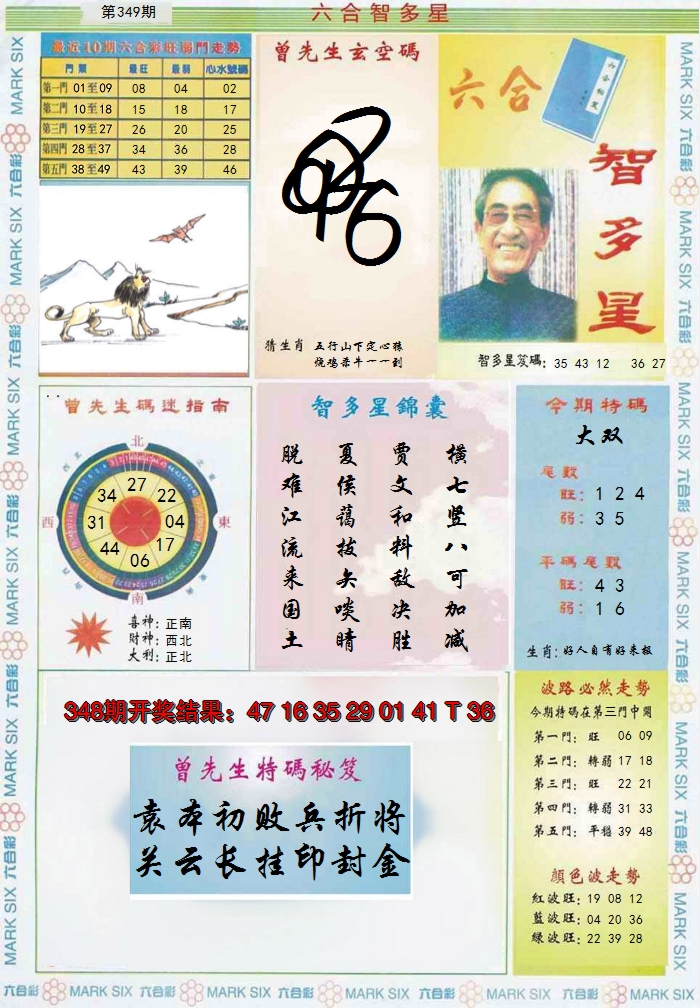 第349期
六合智多星
最近10期六合彩旺弱門走勢
門票 最旺 最弱 心水號碼
第一門 01至09 08 04 02
第二門 10至18 15 18 17
第三門 19至27 26 20 25
第四門 28至37 34 36 28
第五門 38至49 43 39 46
曾先生玄空碼
猜生肖 五行山下定心猿
烧鸡杀牛一一到
六合
智多星
智多星笈碼: 35 43 12 36 27
曾先生碼迷指南
北
西北
東北
西
東
27
34
22
31
04
44
17
06
南
喜神: 正南
财神: 西北
大利: 正北
智多星錦囊
横七竖八可加减
贾文和料敌决胜
夏侯蔼拔矢啖睛
脱难江流来国土
今期特碼
大双
尾數
旺: 1 2 4
弱: 3 5
平碼尾數
旺: 4 3
弱: 1 6
生肖: 好人自有好来报
348期开奖结果: 47 16 35 29 01 41 T 36
曾先生特碼秘笈
袁本初败兵折将
关云长挂印封金
波路必然走勢
今期特碼在第三門中開
第一門: 旺 06 09
第二門: 轉弱 17 18
第三門: 旺 22 21
第四門: 轉弱 31 33
第五門: 平穩 39 48
顏色波走勢
紅波旺: 19 08 12
藍波旺: 04 20 36
绿波旺: 22 39 28
六合彩 MARK SIX 六合彩 MARK SIX 六合彩 MARK SIX 六合彩 MARK SIX 六合彩 MARK SIX